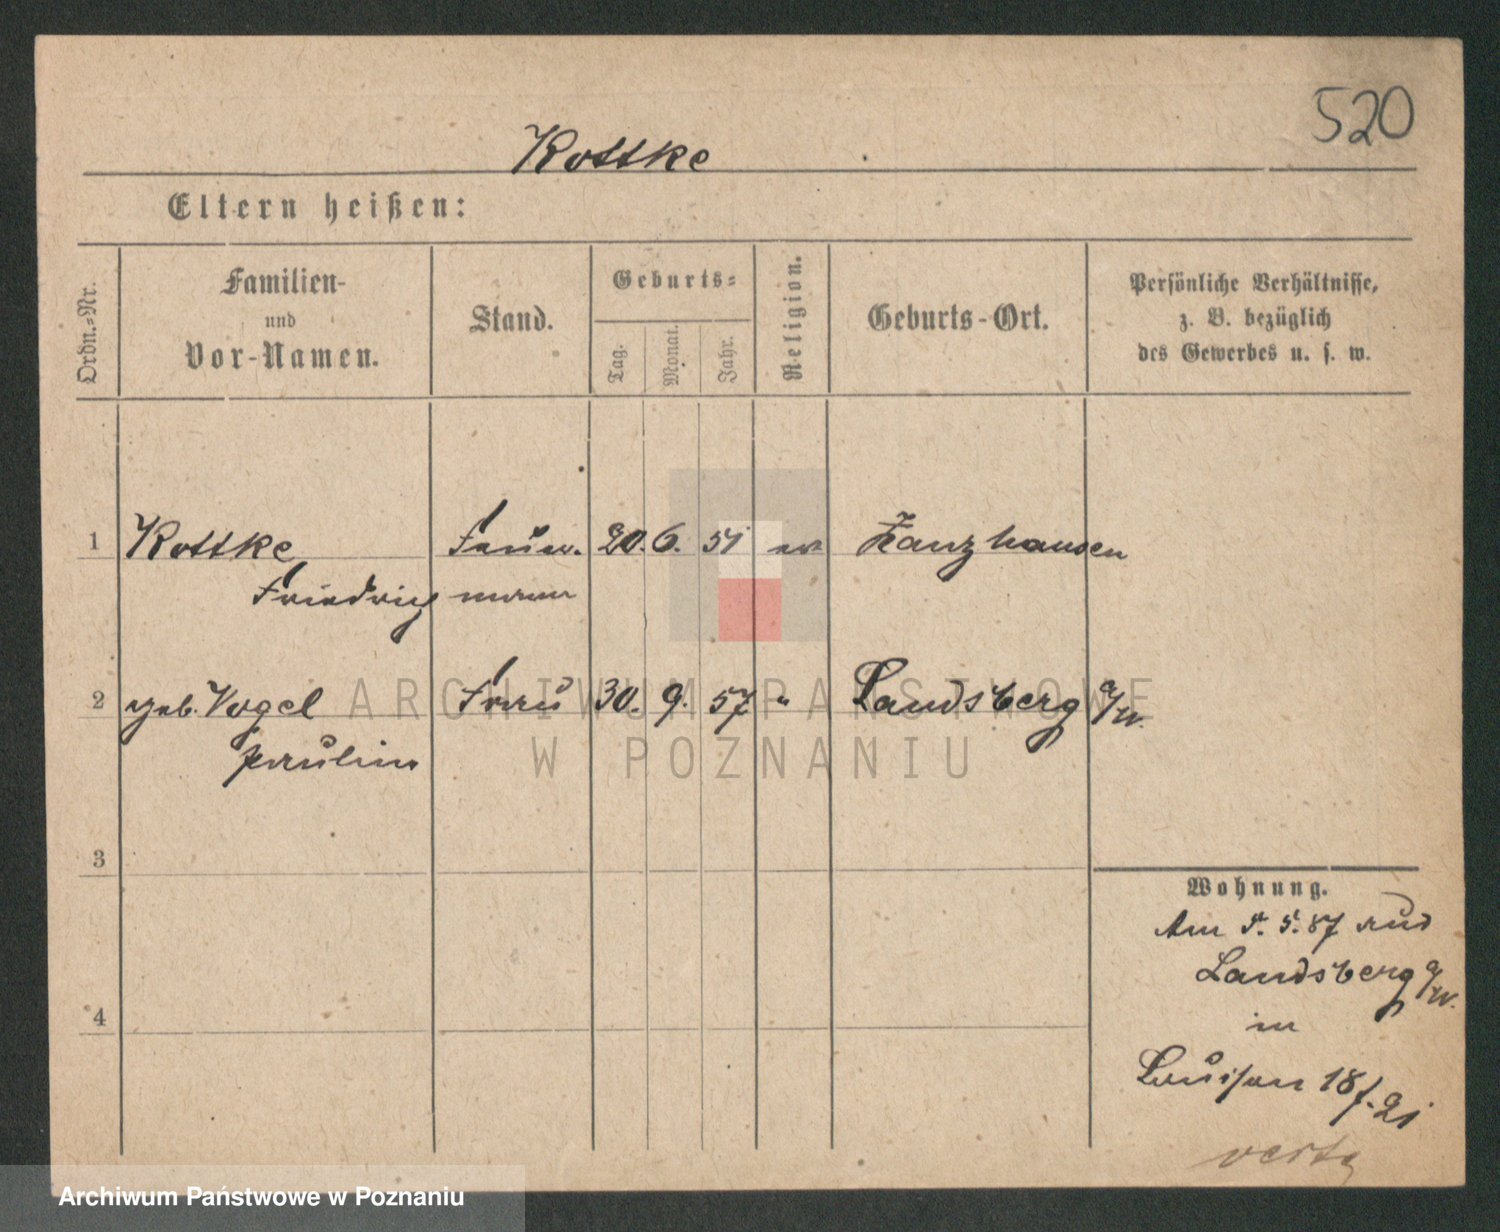 520
Kottke
Eltern heißen:
Ordn.-Nr.
Familien-
und
Vor-Namen.
Stand.
Geburts-
Tag.
Monat.
Jahr.
Religion.
Geburts-Ort.
Persönliche Verhältnisse,
z. B. bezüglich
des Gewerbes u. s. w.
1 Kottke 20. 6. 51 ev Zanzhausen
Friedrich mann
2 geb. Vogel Frau 30. 9. 57 " Landsberg a/W.
Paulin
ARCHIWUM PAŃSTWOWE
W POZNANIU
3
Wohnung.
Am 5. 87 aus
Landsberg a/W.
4
in
18/21
verte
Archiwum Państwowe w Poznaniu